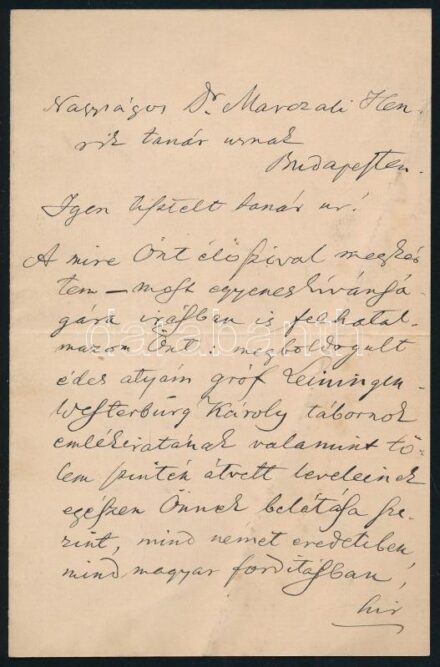 Nagyságos Dr. Marczali Hen-
rik tanár urnak
Budapesten.
Igen tisztelt tanár ur!
A mire Önt élőszóval megkér-
tem – most egyenes kívánsá-
gára irásban is felhatal-
mazom Önt: megboldogult
édes atyám gróf Leiningen-
Westerburg Károly tábornok
emlékiratának valamint tő-
lem szintén átvett leveleinek
egészen Önnek belátása sze-
rint, mind német eredetiben,
mind magyar fordításban,